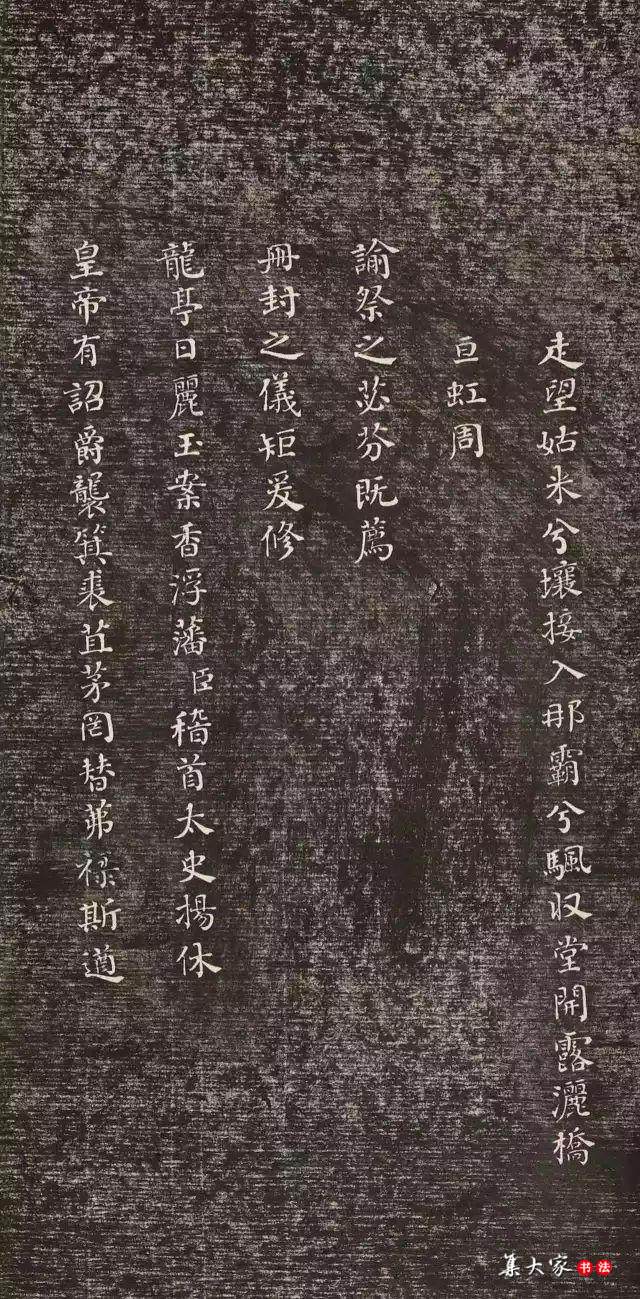 走望姑米兮壤接入那霸兮颿収堂開露灑橋
亘虹周
諭祭之苾芬既薦
冊封之儀矩爰修
龍亭日麗玉案香浮藩臣稽首太史揚休
皇帝有詔爵襲箕裘苴茅罔替茀祿斯遒
集大家书法